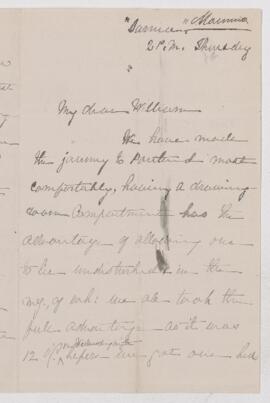 "Samia" Steamer
2 P.M. Thursday
My dear William
We have made
the journey to Portland most
comfortably, having a drawing-
room compartment has the
advantage of allowing one
to be undisturbed in the
mg, of wh: we all took the
full advantage as it was
12 o/c before we got our bed